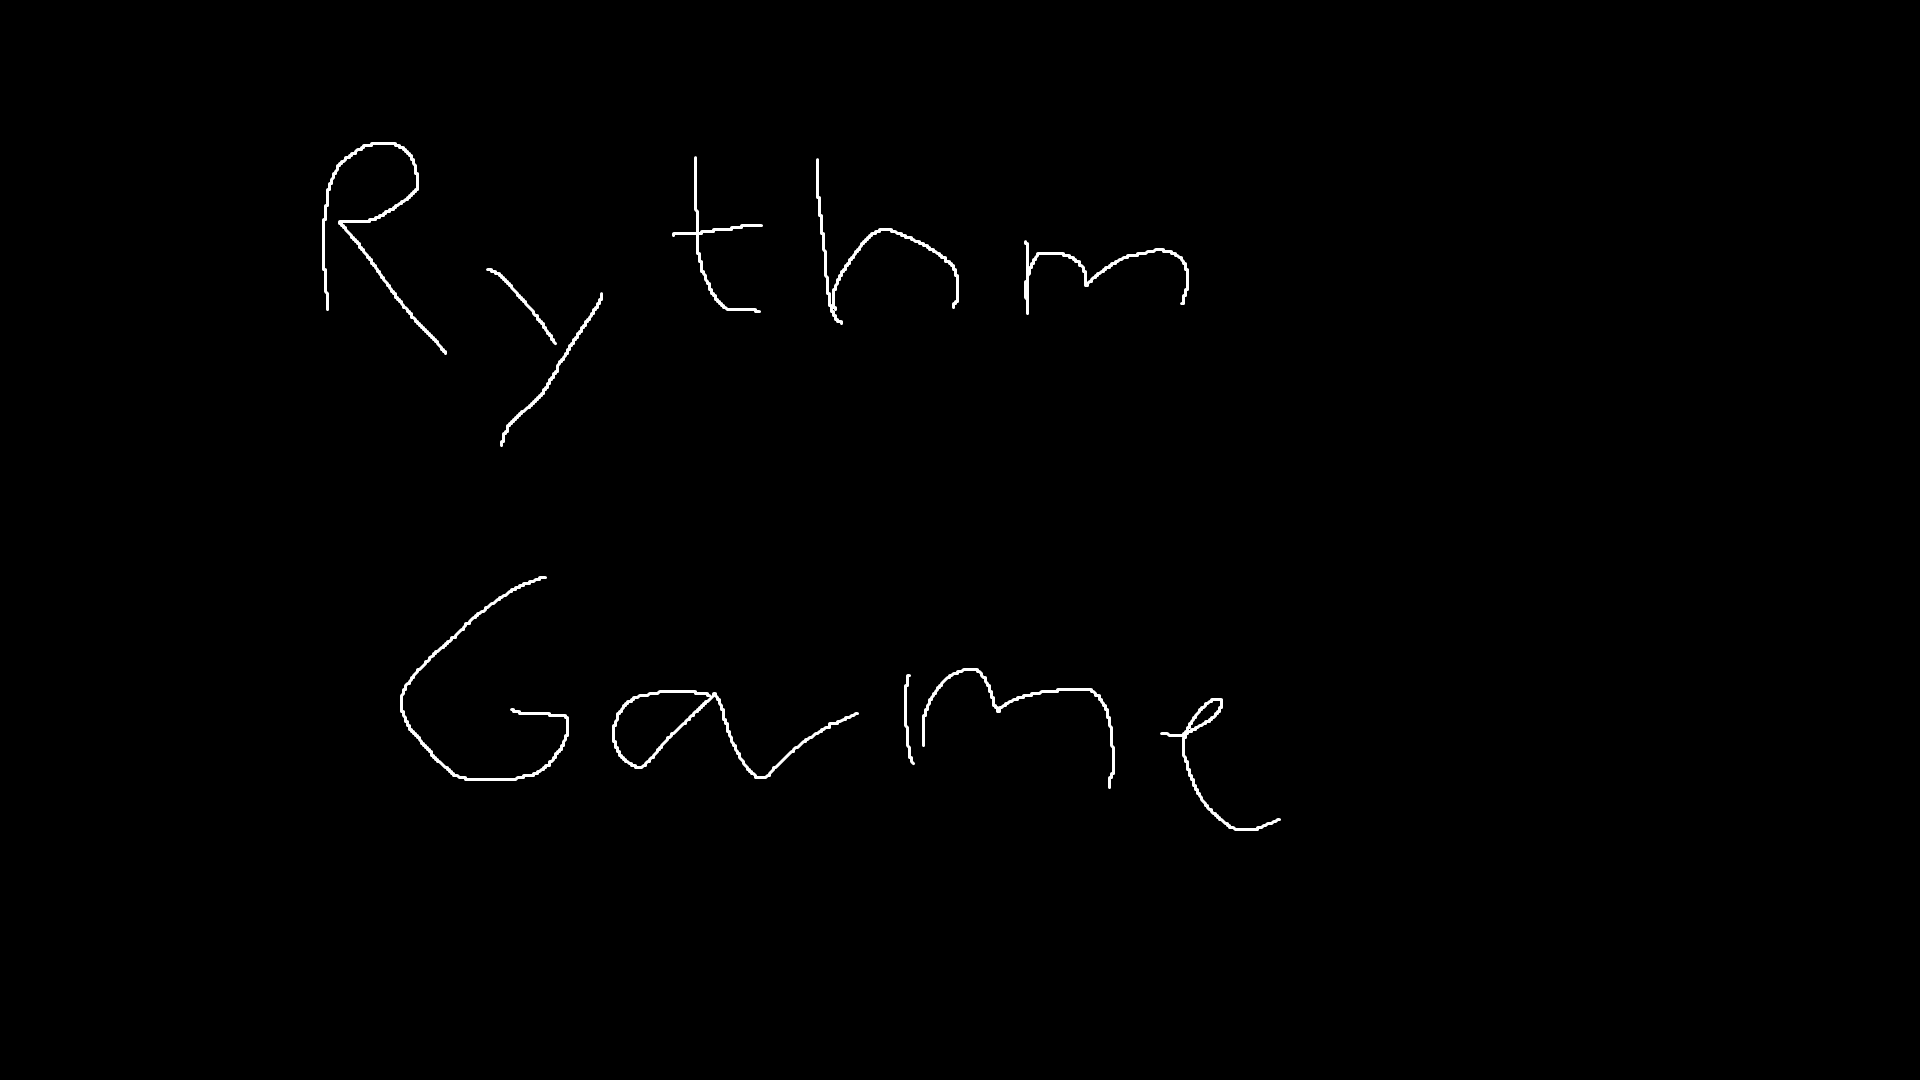 Rythm
Game